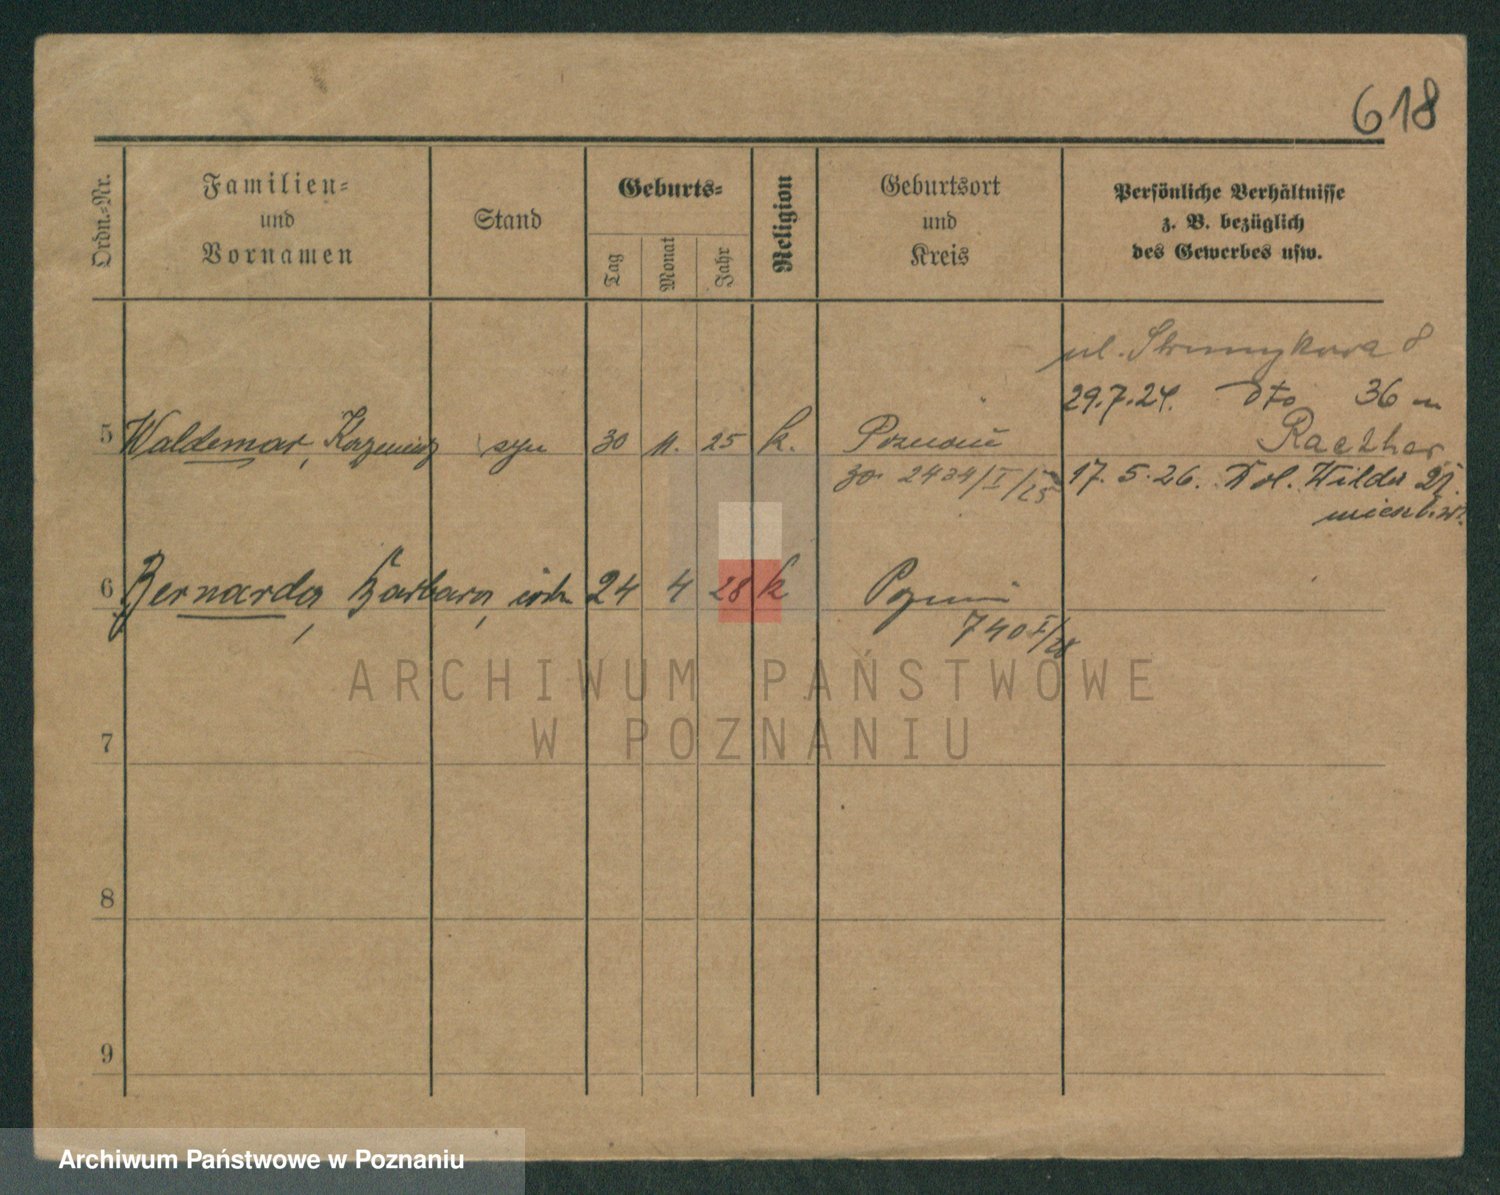 618
Ordn.-Nr.
Familien-
und
Vornamen
Stand
Geburts-
Tag
Monat
Jahr
Religion
Geburtsort
und
Kreis
Persönliche Verhältnisse
z. B. bezüglich
des Gewerbes usw.
ul. Strumykowa 8
29.7.24. dto 36 m
5 Waldemar, Kazimierz syn 30 11. 25 k. Poznań
2434/I/25
17. 5. 26. Wilder
6 Bernarda, Barbara, 24 4 28 k Poznań
740 I/28
7
8
9
ARCHIWUM PAŃSTWOWE
W POZNANIU
Archiwum Państwowe w Poznaniu